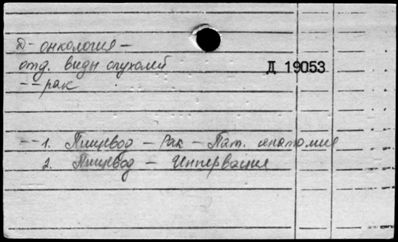 Д - онкология -
отд. виды опухолей
Д 19053
-- рак
-- 1. Пищевод - Рак - Пат. анатомия
2. Пищевод - Иннервация